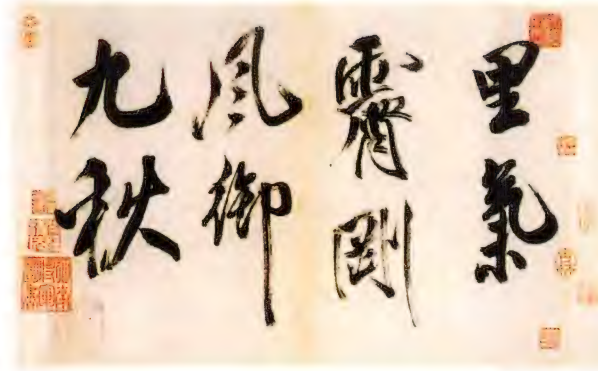 里氣
霽剛
風御
九秋